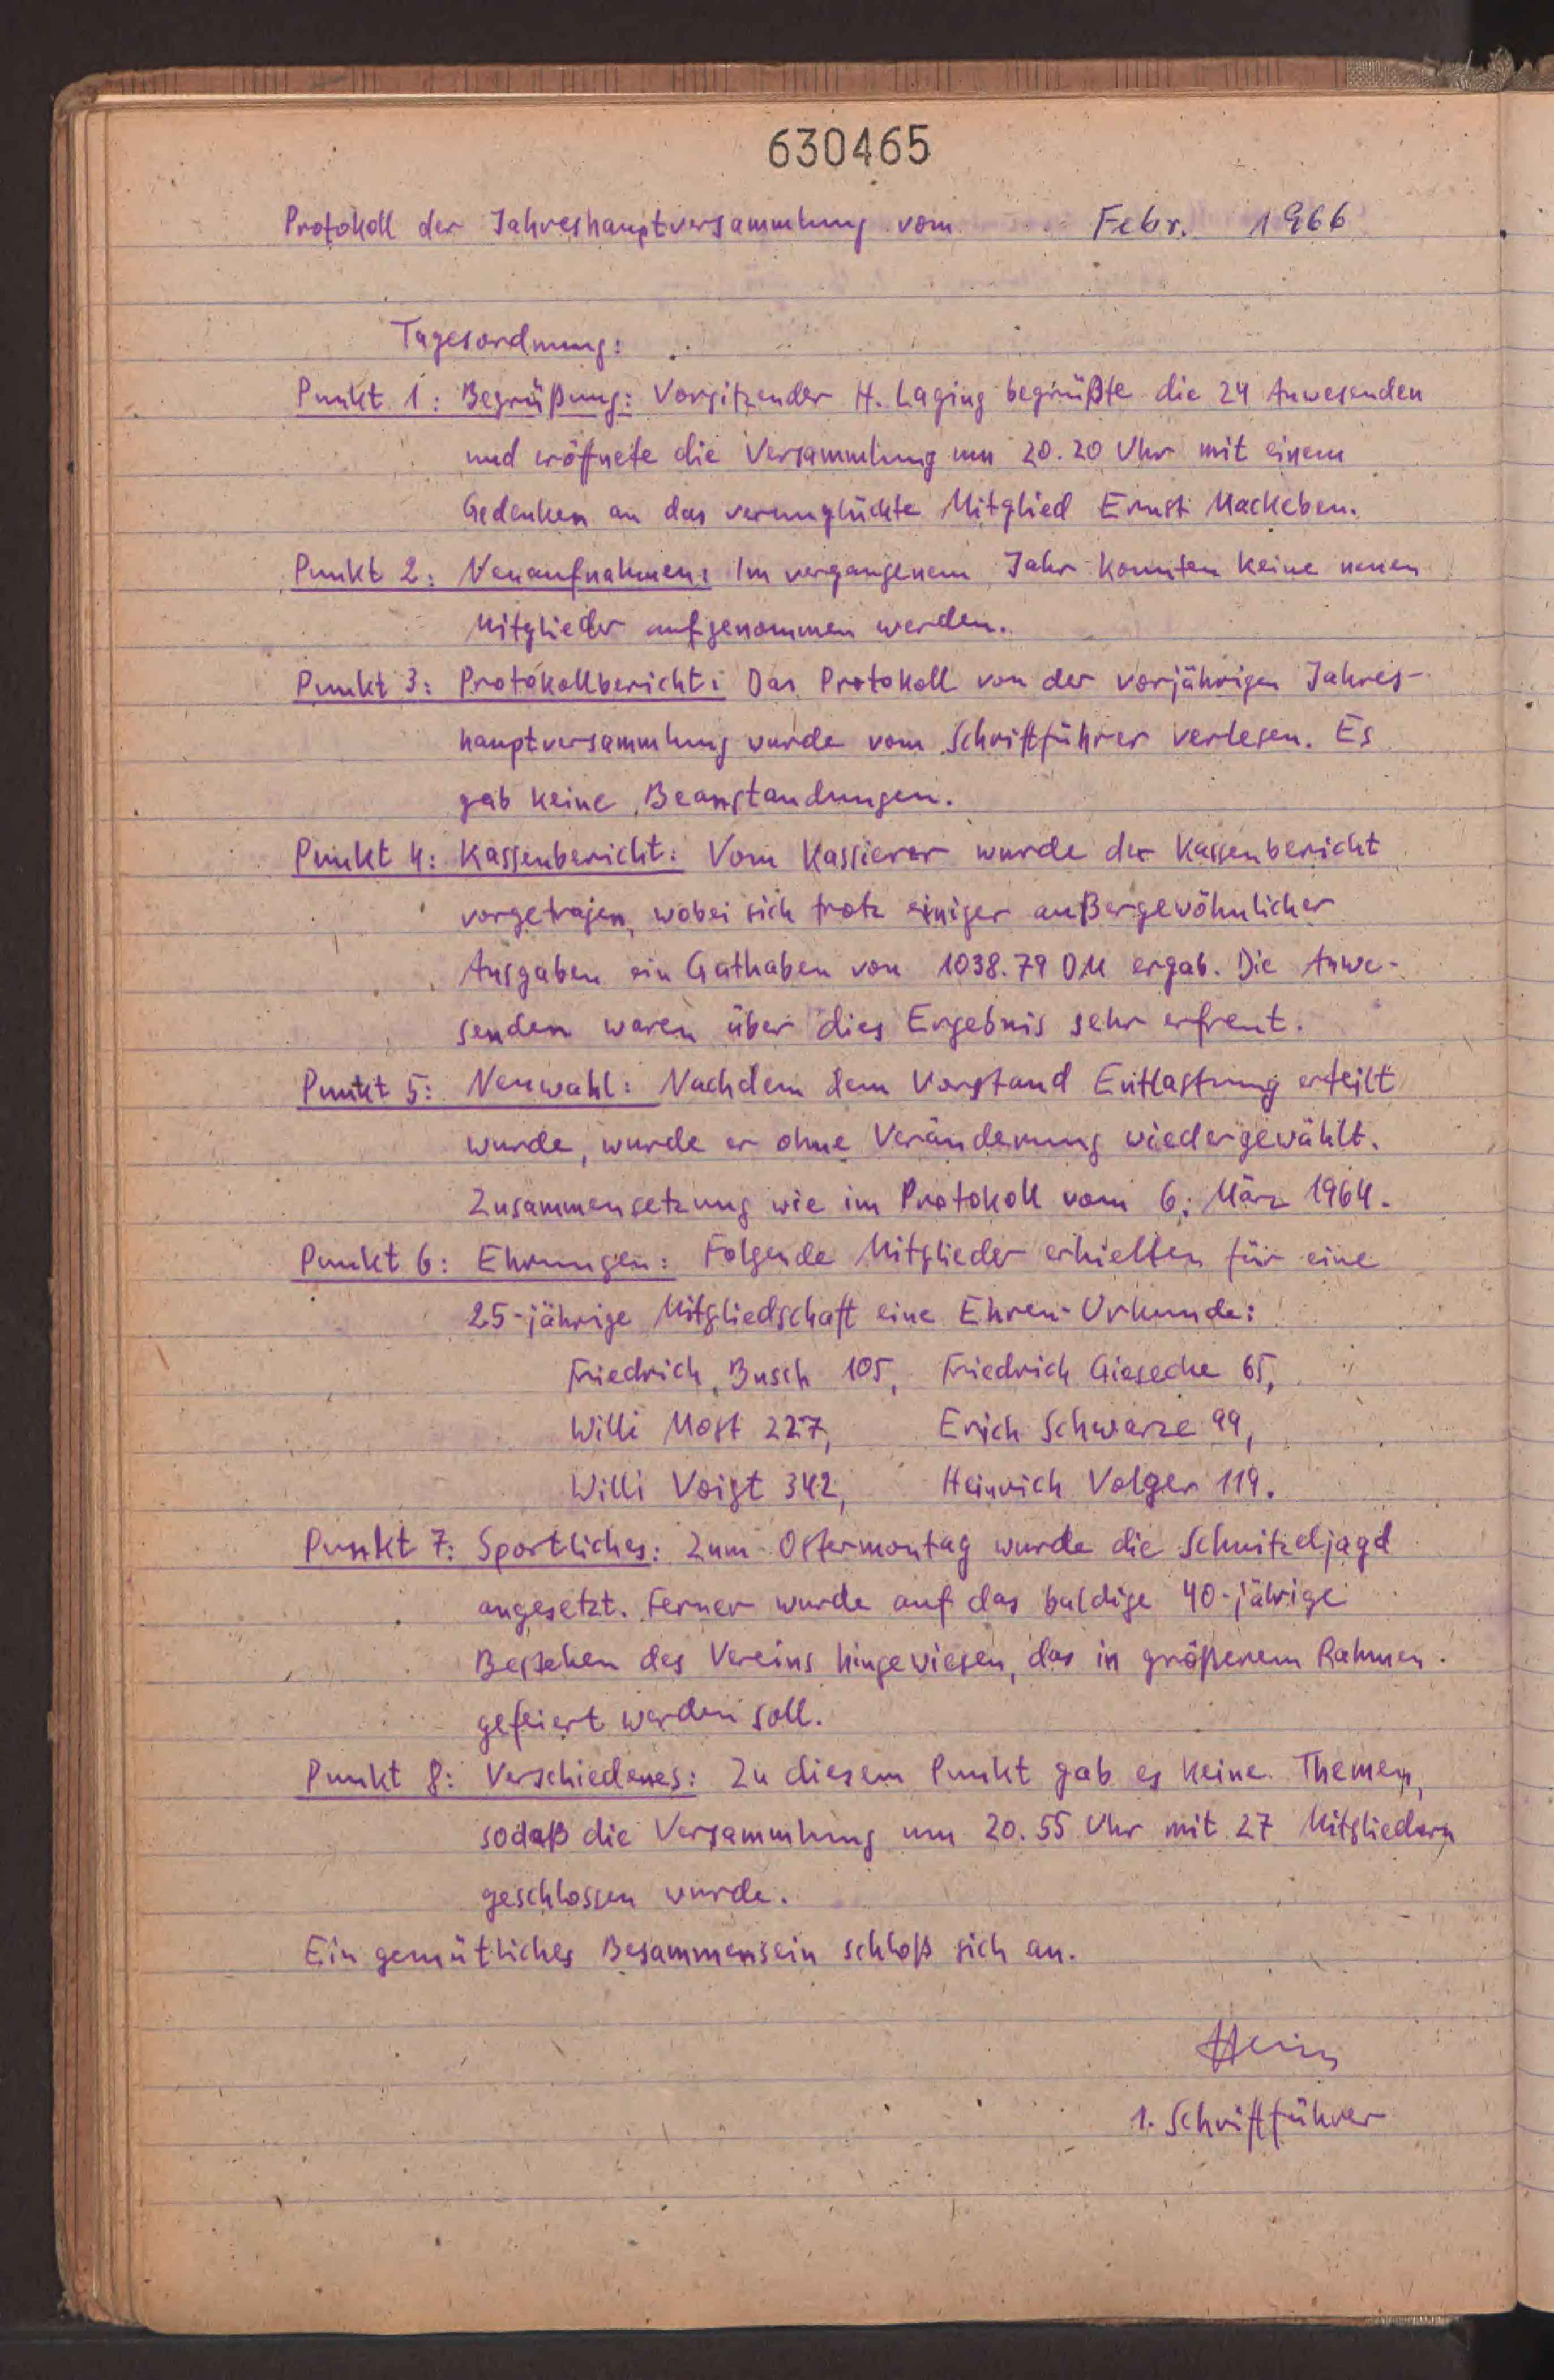 630465
Protokoll der Jahreshauptversammlung vom Febr. 1966
Tagesordnung:
Punkt 1: Begrüßung: Vorsitzender H. Laging begrüßte die 24 Anwesenden
und eröffnete die Versammlung um 20.20 Uhr mit einem
Gedenken an das verunglückte Mitglied Ernst Mackeben.
Punkt 2: Neuaufnahmen: Im vergangenem Jahr konnten keine neuen
Mitglieder aufgenommen werden.
Punkt 3: Protokollbericht: Das Protokoll von der vorjährigen Jahres-
hauptversammlung wurde vom Schriftführer verlesen. Es
gab keine Beanstandungen.
Punkt 4: Kassenbericht: Vom Kassierer wurde der Kassenbericht
vorgetragen, wobei sich trotz einiger außergewöhnlicher
Ausgaben ein Guthaben von 1038.79 DM ergab. Die Anwe-
senden waren über dies Ergebnis sehr erfreut.
Punkt 5: Neuwahl: Nachdem dem Vorstand Entlastung erteilt
wurde, wurde er ohne Veränderung wiedergewählt.
Zusammensetzung wie im Protokoll vom 6. März 1964.
Punkt 6: Ehrungen: Folgende Mitglieder erhielten für eine
25-jährige Mitgliedschaft eine Ehren-Urkunde:
Friedrich Busch 105, Friedrich Giesecke 65,
Willi Most 227, Erich Schwarze 99,
Willi Voigt 342, Heinrich Volger 119.
Punkt 7: Sportliches: Zum Ostermontag wurde die Schnitzeljagd
angesetzt. Ferner wurde auf das baldige 40-jährige
Bestehen des Vereins hingewiesen, das in größerem Rahmen
gefeiert werden soll.
Punkt 8: Verschiedenes: Zu diesem Punkt gab es keine Themen,
sodaß die Versammlung um 20.55 Uhr mit 27 Mitgliedern
geschlossen wurde.
Ein gemütliches Besammensein schloß sich an.
1. Schriftführer